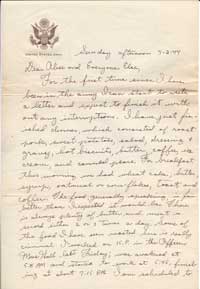 Sunday afternoon 7-2-44
Dear Alice and Everyone Else,
For the first time since I have
been in the army I can start to write
a letter and expect to finish it with
out any interruptions. I have just fin
ished dinner, which consisted of roast
pork, sweet potatoes, salad, dressing &
gravy, hot biscuit, butter, coffee, ice
cream, and canned pears. For breakfast
this morning we had wheat cakes, butter
syrup, oatmeal or corn flakes, toast and
coffee. The food generally speaking is far
better than I expected it would be. There
is always plenty of butter, and meat is
served either 2 or 3 times a day. Some of
the food I have seen wasted here is really
criminal. I worked on K.P. in the Officers
Mess Hall last Friday; was awakened at
5 AM and started to work at 5:45, finish
ing at about 7:15 PM. I am scheduled to